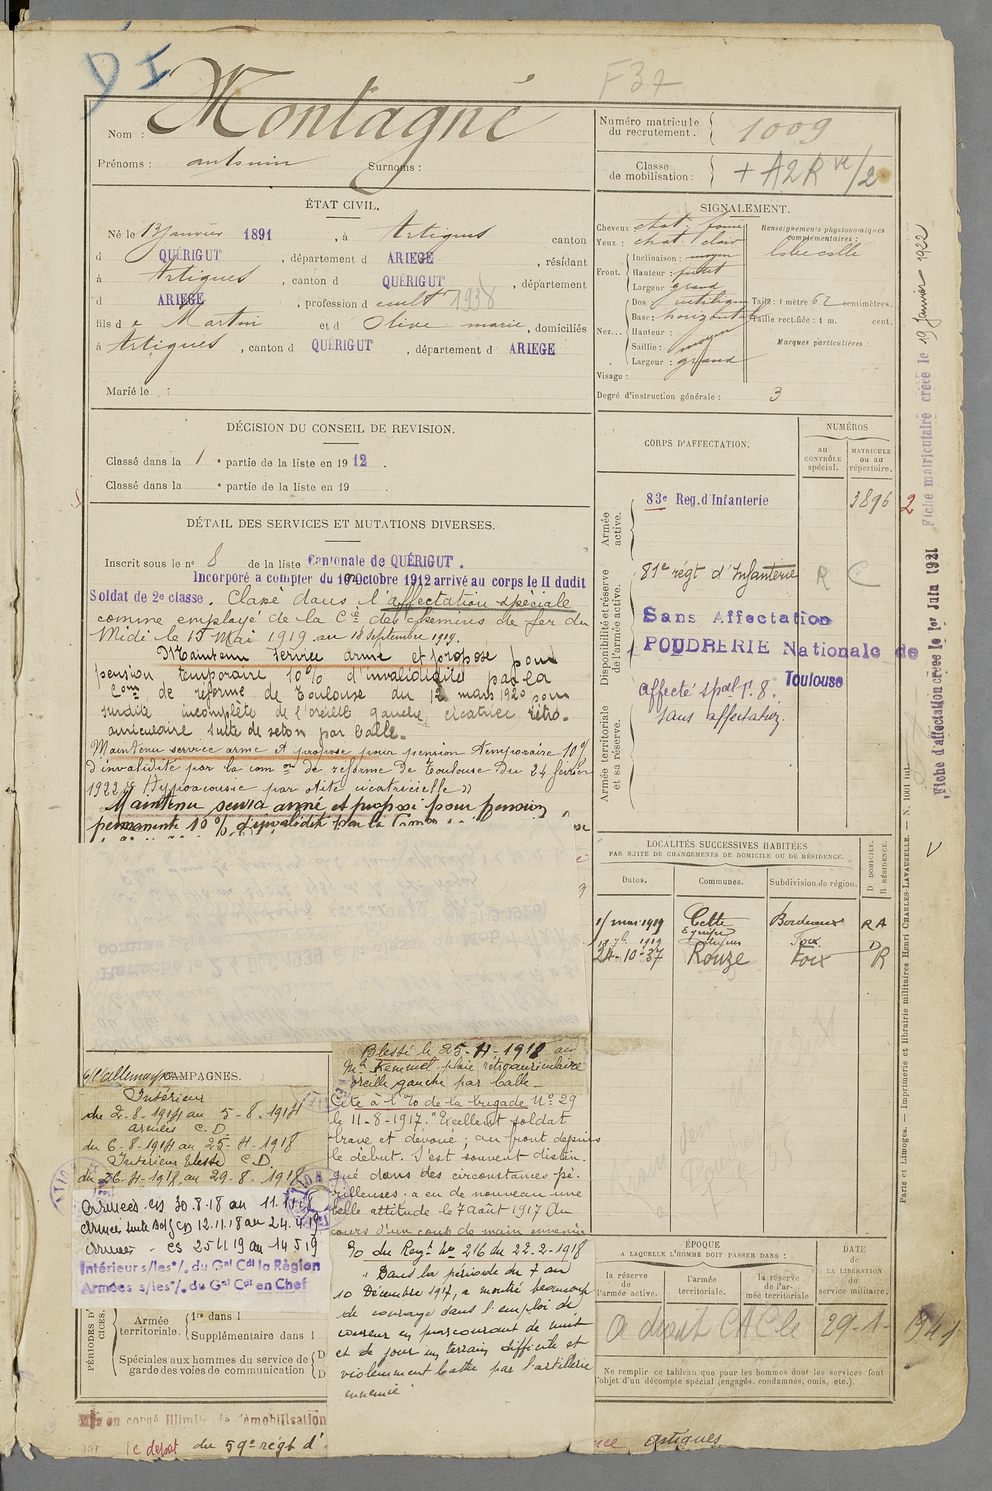 F37
Montagné
Nom :
Prénoms : antonin Surnoms :
Numéro matricule
du recrutement. 1009
Classe
de mobilisation : + A2R ve/2
ÉTAT CIVIL.
Né le 13 Janvier 1891, à Artigues canton
d QUÉRIGUT, département d ARIEGE, résidant
à Artigues, canton d QUÉRIGUT, département
d ARIEGE, profession d cultr 1938
fils d e Martin et d Olive marie, domiciliés
à Artigues, canton d QUÉRIGUT, département d ARIEGE
Marié le :
SIGNALEMENT.
Cheveux chat. foncé
Yeux : chat. clair
Front. Inclinaison : moyen
Hauteur :
Largeur grand
Nez... Dos : rectiligne
Base : horizontale
Hauteur :
Saillie : moyen
Largeur : grand
Renseignements physionomiques
complémentaires :
lobe collé
Taille : 1 mètre 62 centimètres.
Taille rectifiée : 1 m. cent.
Marques particulières :
Visage :
Degré d'instruction générale : 3
DÉCISION DU CONSEIL DE REVISION.
Classé dans la 1 e partie de la liste en 1912.
Classé dans la e partie de la liste en 19 .
DÉTAIL DES SERVICES ET MUTATIONS DIVERSES.
Inscrit sous le n° 8 de la liste Cantonale de QUÉRIGUT.
Incorporé a compter du 10 Octobre 1912 arrivé au corps le II dudit
Soldat de 2e classe. Classé dans l'affectation spéciale
comme employé de la Cie des chemins de fer du
Midi le 15 Mai 1919 au 18 septembre 1919.
Maintenu service armé et proposé pour
pension temporaire 10% d'invalidité par la
Com on de réforme de Toulouse du 12 mars 1920 pour
surdité incomplète de l'oreille gauche, cicatrice rétro-
auriculaire suite de seton par balle.
Maintenu service armé et proposé pour pension temporaire 10%
d'invalidité par la com on de réforme De Toulouse Du 24 février
1922 « Hypoacousie par otite cicatricielle »
Maintenu service armé et proposé pour pension
permanente 10% d'invalidité par la Comon
CORPS D'AFFECTATION.
NUMÉROS
au
CONTRÔLE
spécial.
MATRICULE
ou au
répertoire.
Armée
active.
83e Reg. d'Infanterie 3896
2
Disponibilité et réserve
de l'armée active.
81e régt d'Infanterie R C
Sans Affectation
POUDRERIE Nationale de
Toulouse
Armée territoriale
et sa réserve.
Affecté spal T. 8.
Sans affectation.
LOCALITÉS SUCCESSIVES HABITÉES
PAR SUITE DE CHANGEMENTS DE DOMICILE OU DE RÉSIDENCE.
Dates. Communes. Subdivision de région. D DOMICILE. R RÉSIDENCE.
1/ mai 1919 Cette Bordeaux RA
1919 Foix D
24-10-37 Rouze Foix R
CAMPAGNES.
Intérieur
du 2-8-1914 au 5-8-1914
armées C.D
du 6-8-1914 au 25-4-1918
Intérieur blessé C.D
du 26-4-1918 au 29-8-1918
Armées CD 30.8.18 au 11.11.18
12.11.18 au 24.4.19
Armées - CS 25 4 19 au 14 5 19
Intérieur s/les °/. du Gal Cdt la Région
Armées s/les °/. du Gal Cdt en Chef
Blessé le 25-4-1918 au
Mt Kemmel plaie rétroauriculaire
oreille gauche par balle_
Cité à l'O de la brigade N° 29
le 11-8-1917. "Excellent soldat
brave et dévoué ; au front depuis
le début. S'est souvent distin-
gué dans des circonstances pé-
rilleuses. a eu de nouveau une
belle attitude le 7 août 1917 Au
cours d'un coup de main ennemi
O du Regt No 216 du 22-2-1918
"Dans la période du 7 au
10 Décembre 1917, a montré beaucoup
de courage dans l'emploi de
coureur en parcourant de nuit
et de jour un terrain difficile et
violemment battu par l'artillerie
ennemie
PÉRIODES D'
CICES.
Armée
territoriale. 1re dans l
Supplémentaire dans l
Spéciales aux hommes du service de
garde des voies de communication D
D
ÉPOQUE
A LAQUELLE L'HOMME DOIT PASSER DANS :
la réserve
de
l'armée active.
l'armée
territoriale.
la réserve
de l'ar-
mée territoriale
DATE
de
LA LIBÉRATION
du
service militaire.
A droit CAC le 29-1-1941
Ne remplir ce tableau que pour les hommes dont les services font
l'objet d'un décompte spécial (engagés, condamnés, omis, etc.).
en congé illimité de démobilisation
le dépot du 59e régt d' Artigues
Fiche matriculaire créée le 19 Janvier 1922
Fiche d'affectation créée le 1er Juin 1921
Paris et Limoges. — Imprimerie et librairie militaires Henri CHARLES-LAVAUZELLE.